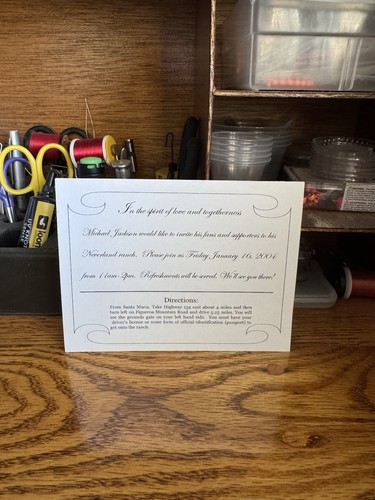 In the spirit of love and togetherness
Michael Jackson would like to invite his fans and supporters to his
Neverland ranch. Please join us Friday, January 16, 2004
from 11am-2pm. Refreshments will be served. We'll see you there!
Directions:
From Santa Maria: Take Highway 154 east about 4 miles and then
turn left on Figueroa Mountain Road and drive 5.25 miles. You will
see the grounds gate on your left hand side. You must have your
driver's license or some form of official identification (passport) to
get onto the ranch.